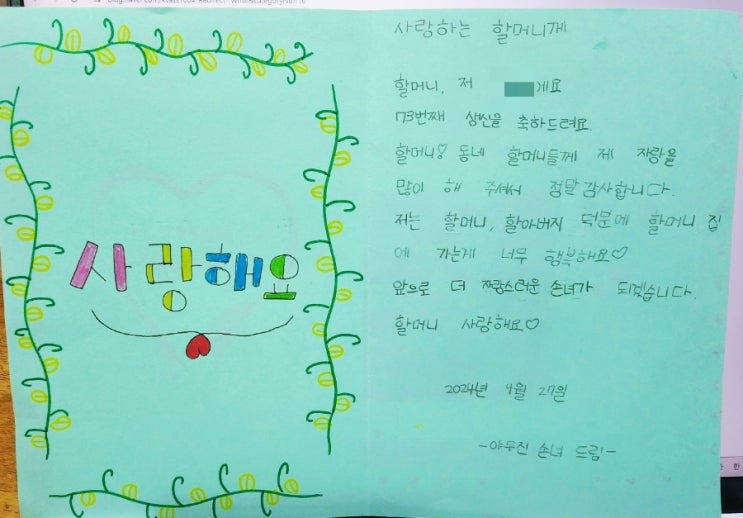 사랑해요
사랑하는 할머니께
할머니, 저 게요
73번째 생신을 축하드려요.
할머니♡ 동네 할머니들께 제 자랑을
많이 해 주셔서 정말 감사합니다.
저는 할머니, 할아버지 덕분에 할머니 집
에 가는게 너무 행복해요♡
앞으로 더 자랑스러운 손녀가 되겠습니다.
할머니 사랑해요♡
2024년 4월 27일
-야무진 손녀 드림-